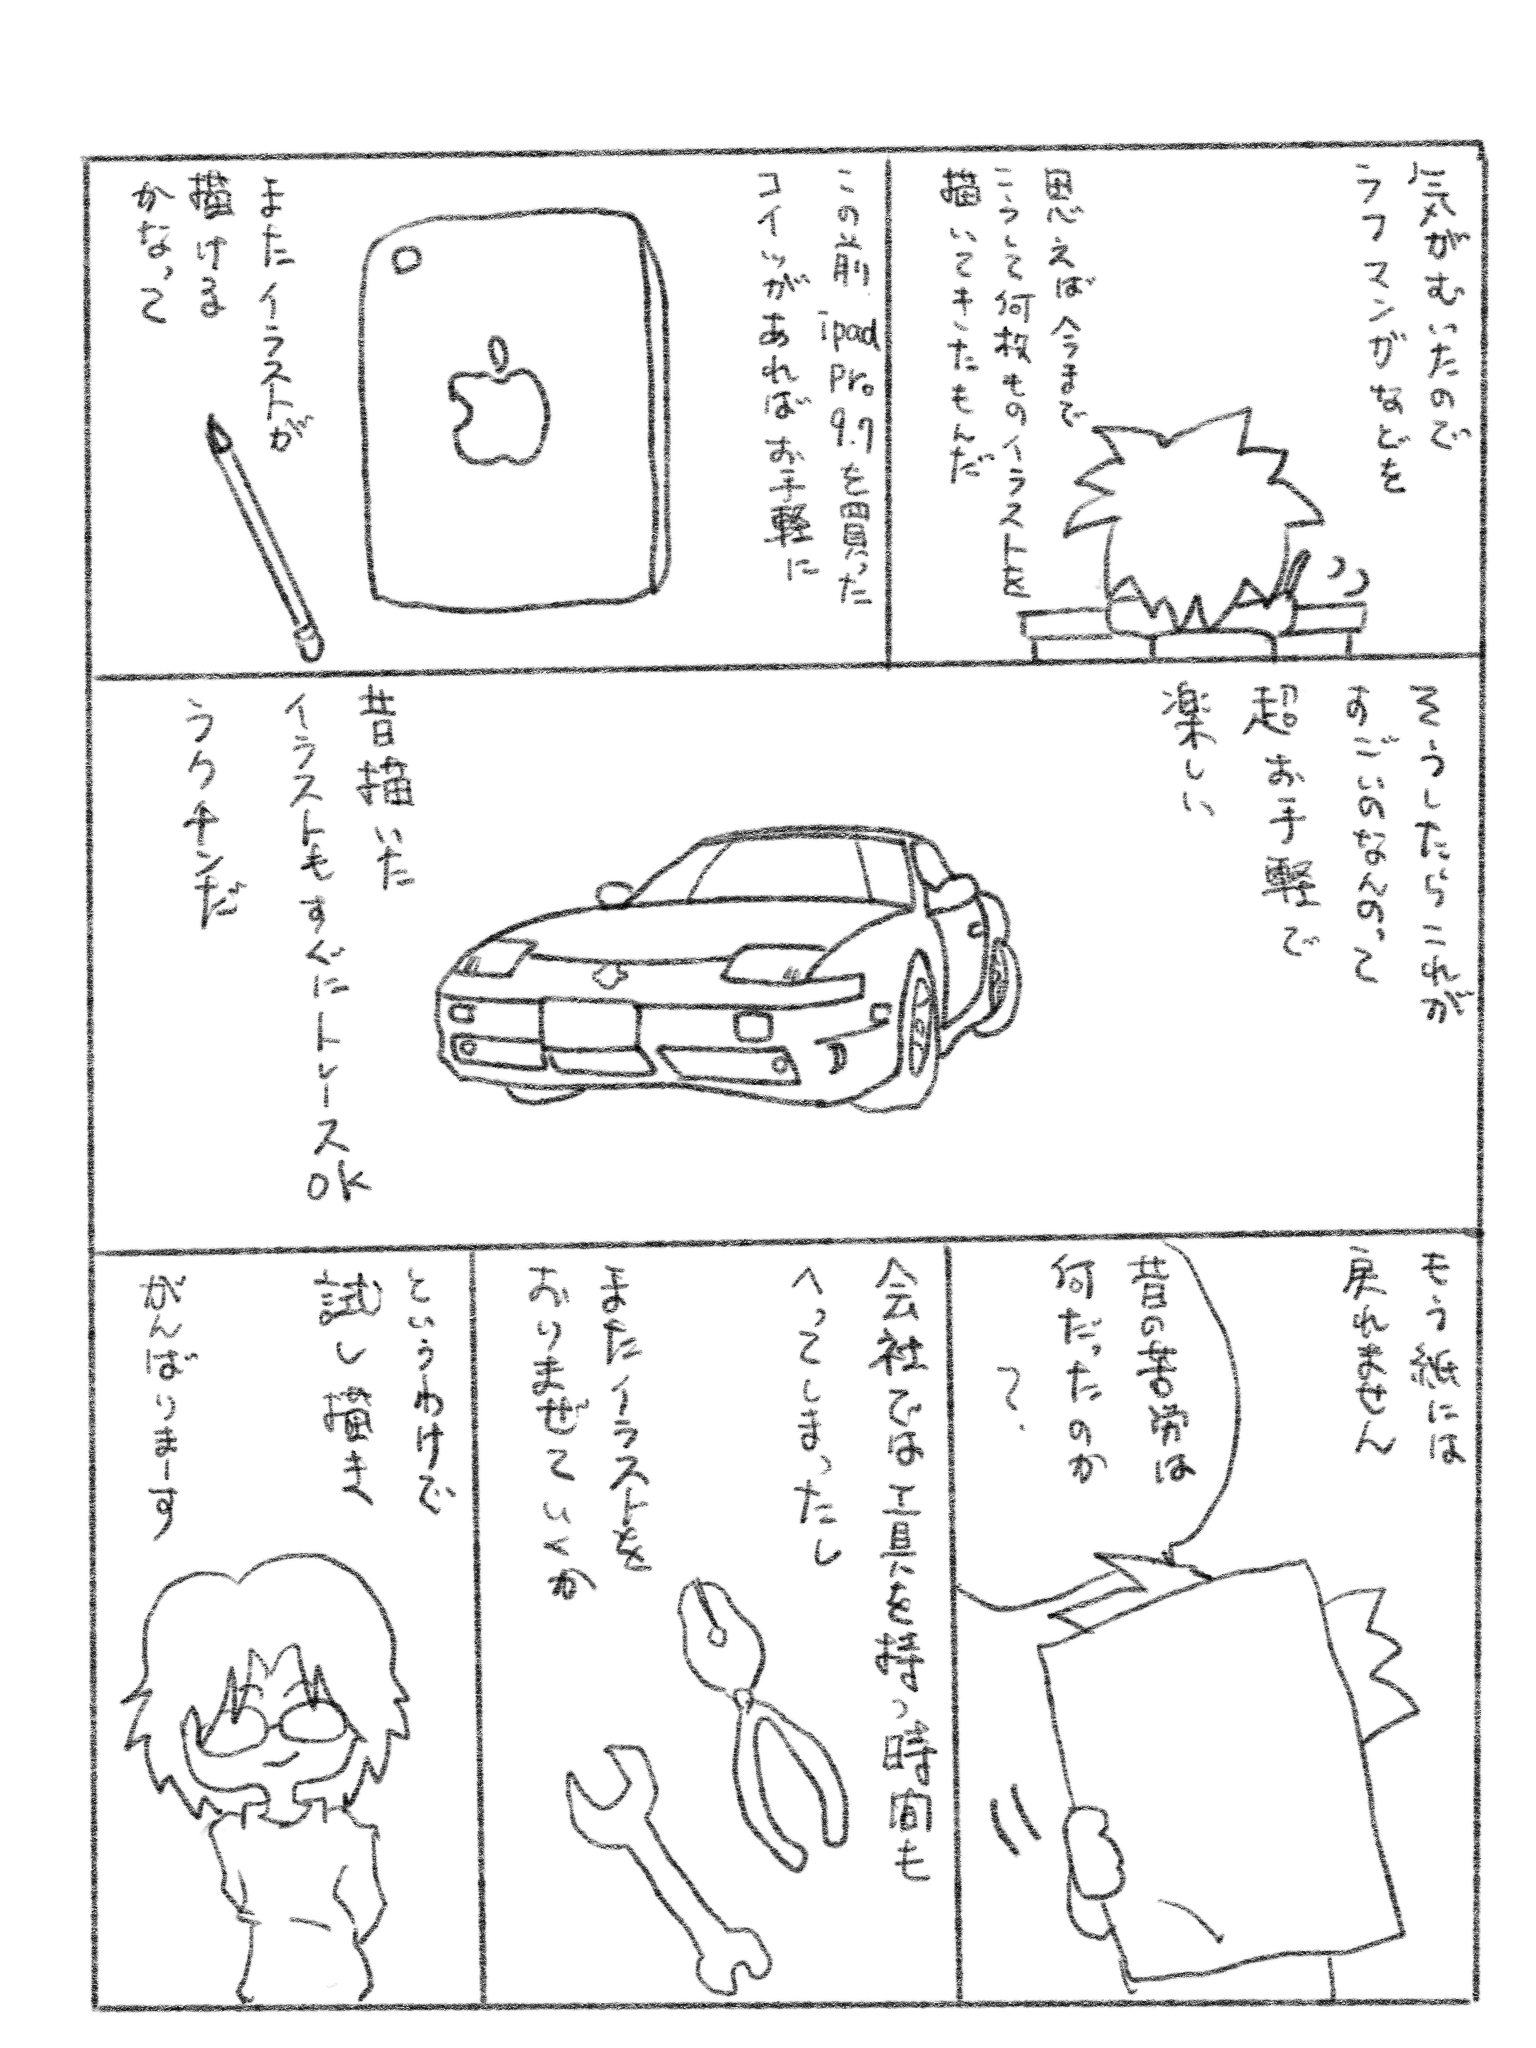 気がむいたので
ラフマンガなどを
思えば今まで
こうして何枚ものイラストを
描いてキたもんだ
この前ipad pro 9.7を買った
コイツがあればお手軽に
またイラストが
描ける
かなって
そうしたらこれが
すごいのなんのって
超お手軽で
楽しい
昔描いた
イラストもすぐにトレースOK
ラクチンだ
もう紙には
戻れません
昔の苦労は
何だったのか
?
会社では工具を持つ時間も
へってしまったし
またイラストを
おりまぜていくか
というわけで
試し描き
がんばりまーす